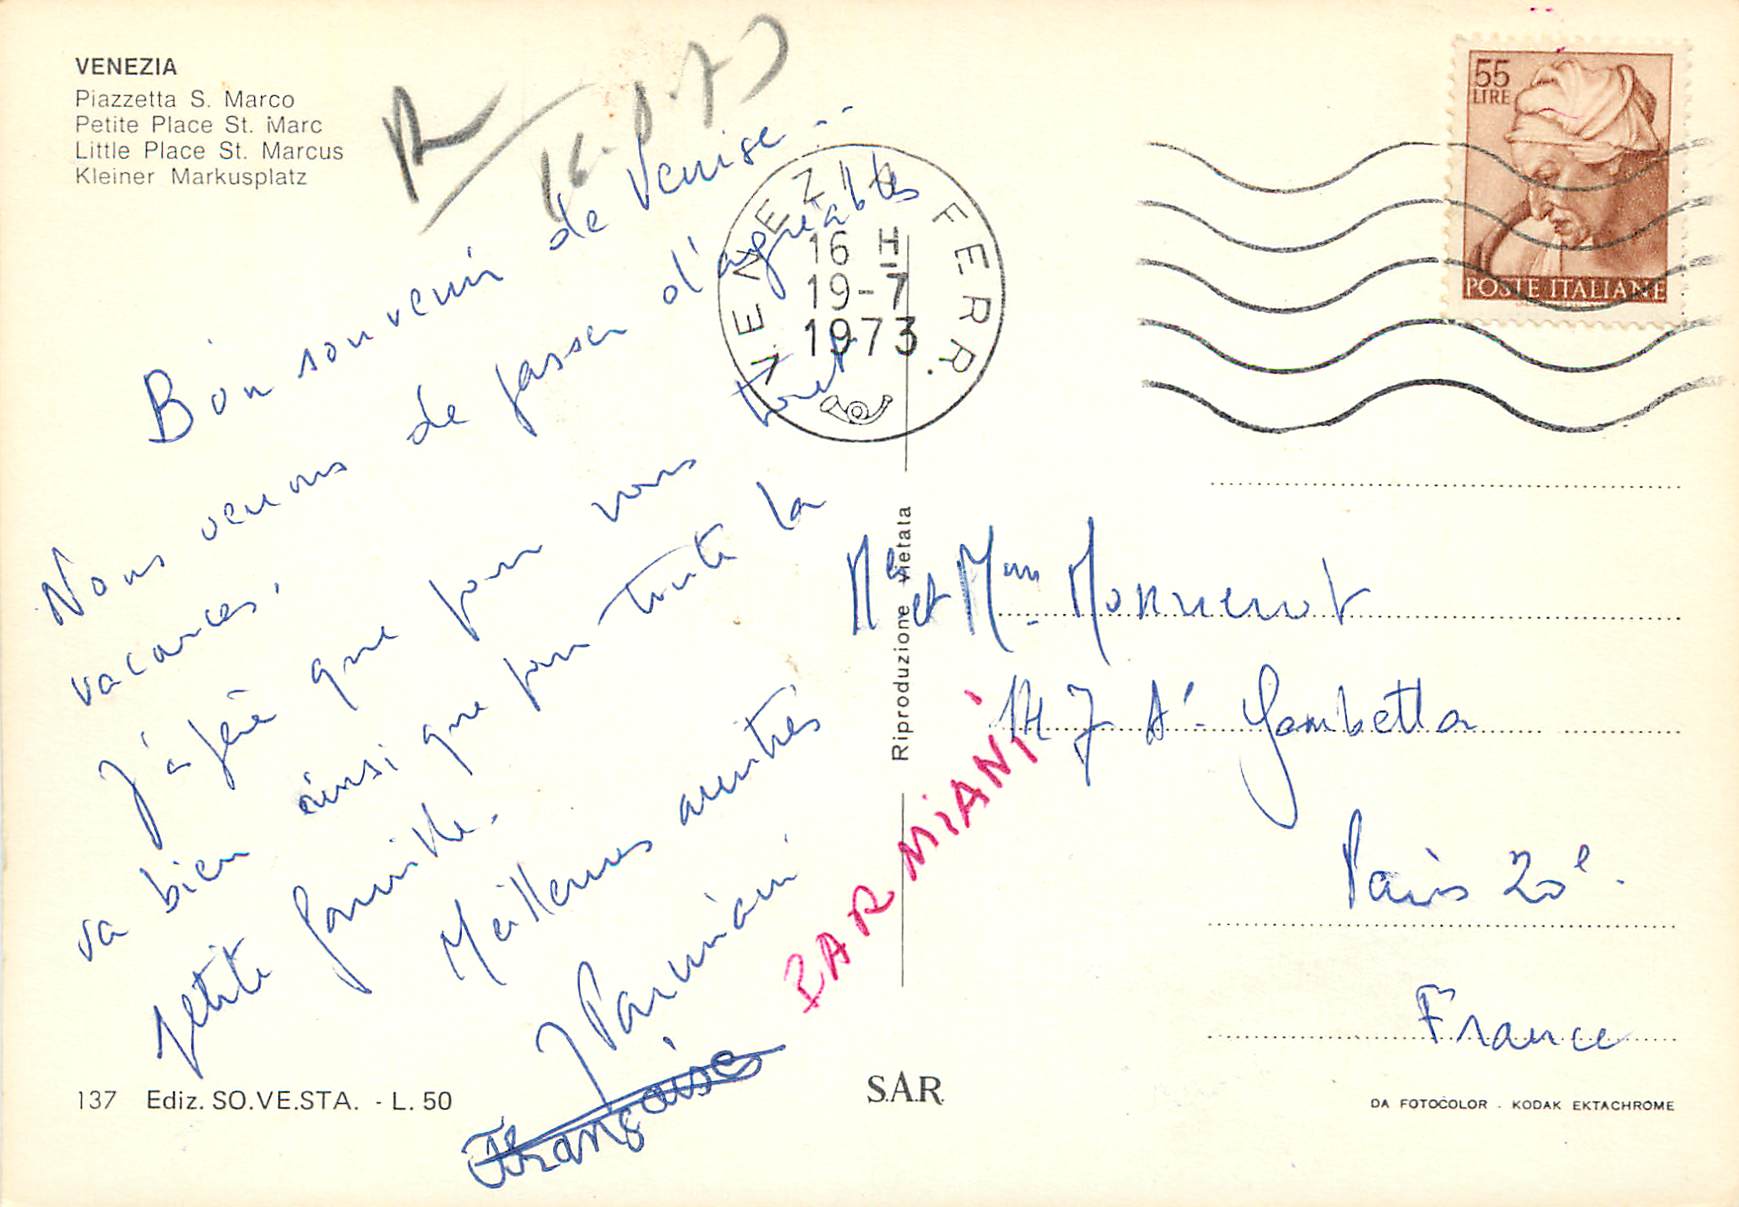 VENEZIA
Piazzetta S. Marco
Petite Place St. Marc
Little Place St. Marcus
Kleiner Markusplatz
R 16.8.73
55
LIRE
POSTE ITALIANE
VENEZIA FERR.
16 H
19-7
1973
Bon souvenir de Venise...
Nous venons de passer d'agréables
vacances.
J'espère que pour vous tout
va bien ainsi que pour toute la
petite famille.
Meilleures amitiés
J Parmiani
Françoise
PARMIANI
Riproduzione vietata
Mr et Mme Monnenot
Gambetta
Paris 20e.
France
137 Ediz. SO.VE.STA. - L. 50
S.A.R.
DA FOTOCOLOR - KODAK EKTACHROME